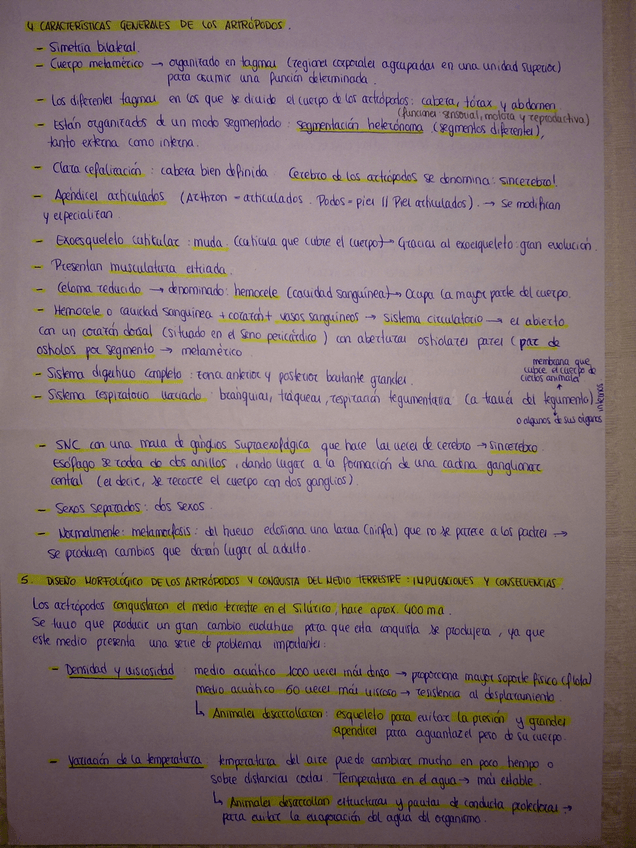 4 CARACTERÍSTICAS GENERALES DE LOS ARTRÓPODOS.
– Simetría bilateral.
– Cuerpo metamérico → organizado en tagmas (regiones corporales agrupadas en una unidad superior)
para asumir una función determinada.
– Los diferentes tagmas en los que se divide el cuerpo de los artrópodos: cabeza, tórax y abdomen
(funciones sensorial, motora y reproductiva)
– Están organizados de un modo segmentado: segmentación heterónoma (segmentos diferentes),
tanto externa como interna.
– Clara cefalización: cabeza bien definida. Cerebro de los artrópodos se denomina: sincerebro!
– Apéndices articulados (Arthron = articulados. Podos = pies // Pies articulados). → Se modifican
y especializan.
– Exoesqueleto cuticular: muda. (cutícula que cubre el cuerpo) → Gracias al exoesqueleto: gran evolución.
– Presentan musculatura estriada.
– Celoma reducido → denominado: hemocele (cavidad sanguínea) → Ocupa la mayor parte del cuerpo.
– Hemocele o cavidad sanguínea + corazón + vasos sanguíneos → Sistema circulatorio → es abierto
con un corazón dorsal (situado en el seno pericárdico) con aberturas osholares pares (par de
osholos por segmento → metamérico.
– Sistema digestivo completo: zona anterior y posterior bastante grandes.
membrana que
cubre el cuerpo de
ciertos animales
– Sistema respiratorio variado: branquias, tráqueas, respiración tegumentaria (a través del tegumento)
o algunos de sus órganos
internos
– SNC con una masa de ganglios supraesofágica que hace las veces de cerebro → sincerebro.
Esófago se rodea de dos anillos, dando lugar a la formación de una cadena ganglionar
central (es decir, se recorre el cuerpo con dos ganglios).
– Sexos separados: dos sexos.
– Normalmente: metamorfosis: del huevo eclosiona una larva (ninfa) que no se parece a los padres →
se producen cambios que darán lugar al adulto.
5. DISEÑO MORFOLÓGICO DE LOS ARTRÓPODOS Y CONQUISTA DEL MEDIO TERRESTRE: IMPLICACIONES Y CONSECUENCIAS.
Los artrópodos conquistaron el medio terrestre en el Silúrico, hace aprox. 400 m.a.
Se tuvo que producir un gran cambio evolutivo para que esta conquista se produjera, ya que
este medio presenta una serie de problemas importantes:
– Densidad y viscosidad: medio acuático 1000 veces más denso → proporciona mayor soporte físico (flota)
medio acuático 60 veces más viscoso → resistencia al desplazamiento.
↳ Animales desarrollaron: esqueleto para evitar la presión y grandes
apéndices para aguantar el peso de su cuerpo.
– Variación de la temperatura: temperatura del aire puede cambiar mucho en poco tiempo o
sobre distancias cortas. Temperatura en el agua → más estable.
↳ Animales desarrollan estructuras y pautas de conducta protectoras →
para evitar la evaporación del agua del organismo.